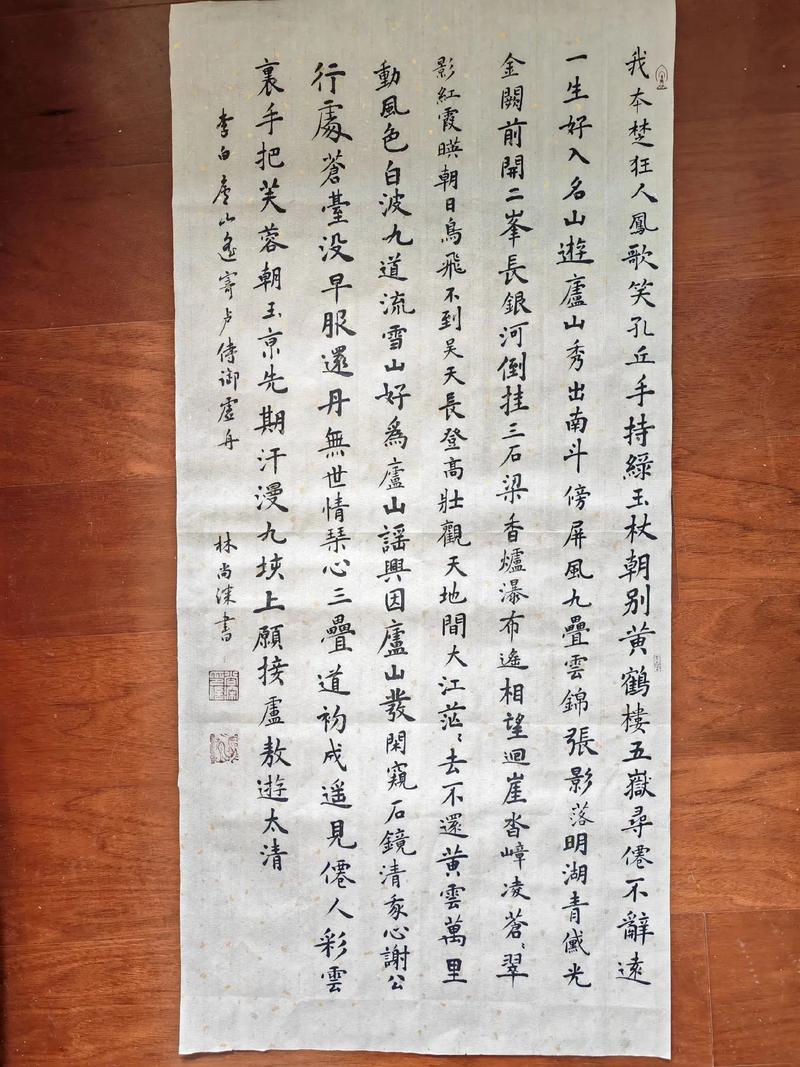 我本楚狂人鳳歌笑孔丘手持綠玉杖朝别黄鶴樓五嶽尋僊不辭遠
一生好入名山遊廬山秀出南斗傍屏風九疊雲錦張影落明湖青黛光
金闕前開二峯長銀河倒挂三石梁香爐瀑布遙相望迴崖沓嶂凌蒼〻翠
影紅霞暎朝日鳥飛不到吴天長登高壯觀天地間大江茫〻去不還黄雲萬里
動風色白波九道流雪山好為廬山謡興因廬山發閑窺石鏡清我心謝公
行處蒼臺没早服還丹無世情琴心三疊道初成遥見僊人彩雲
裏手把芙蓉朝玉京先期汗漫九垓上願接盧敖遊太清
李白廬山遙寄卢侍御虚舟
林尚 書